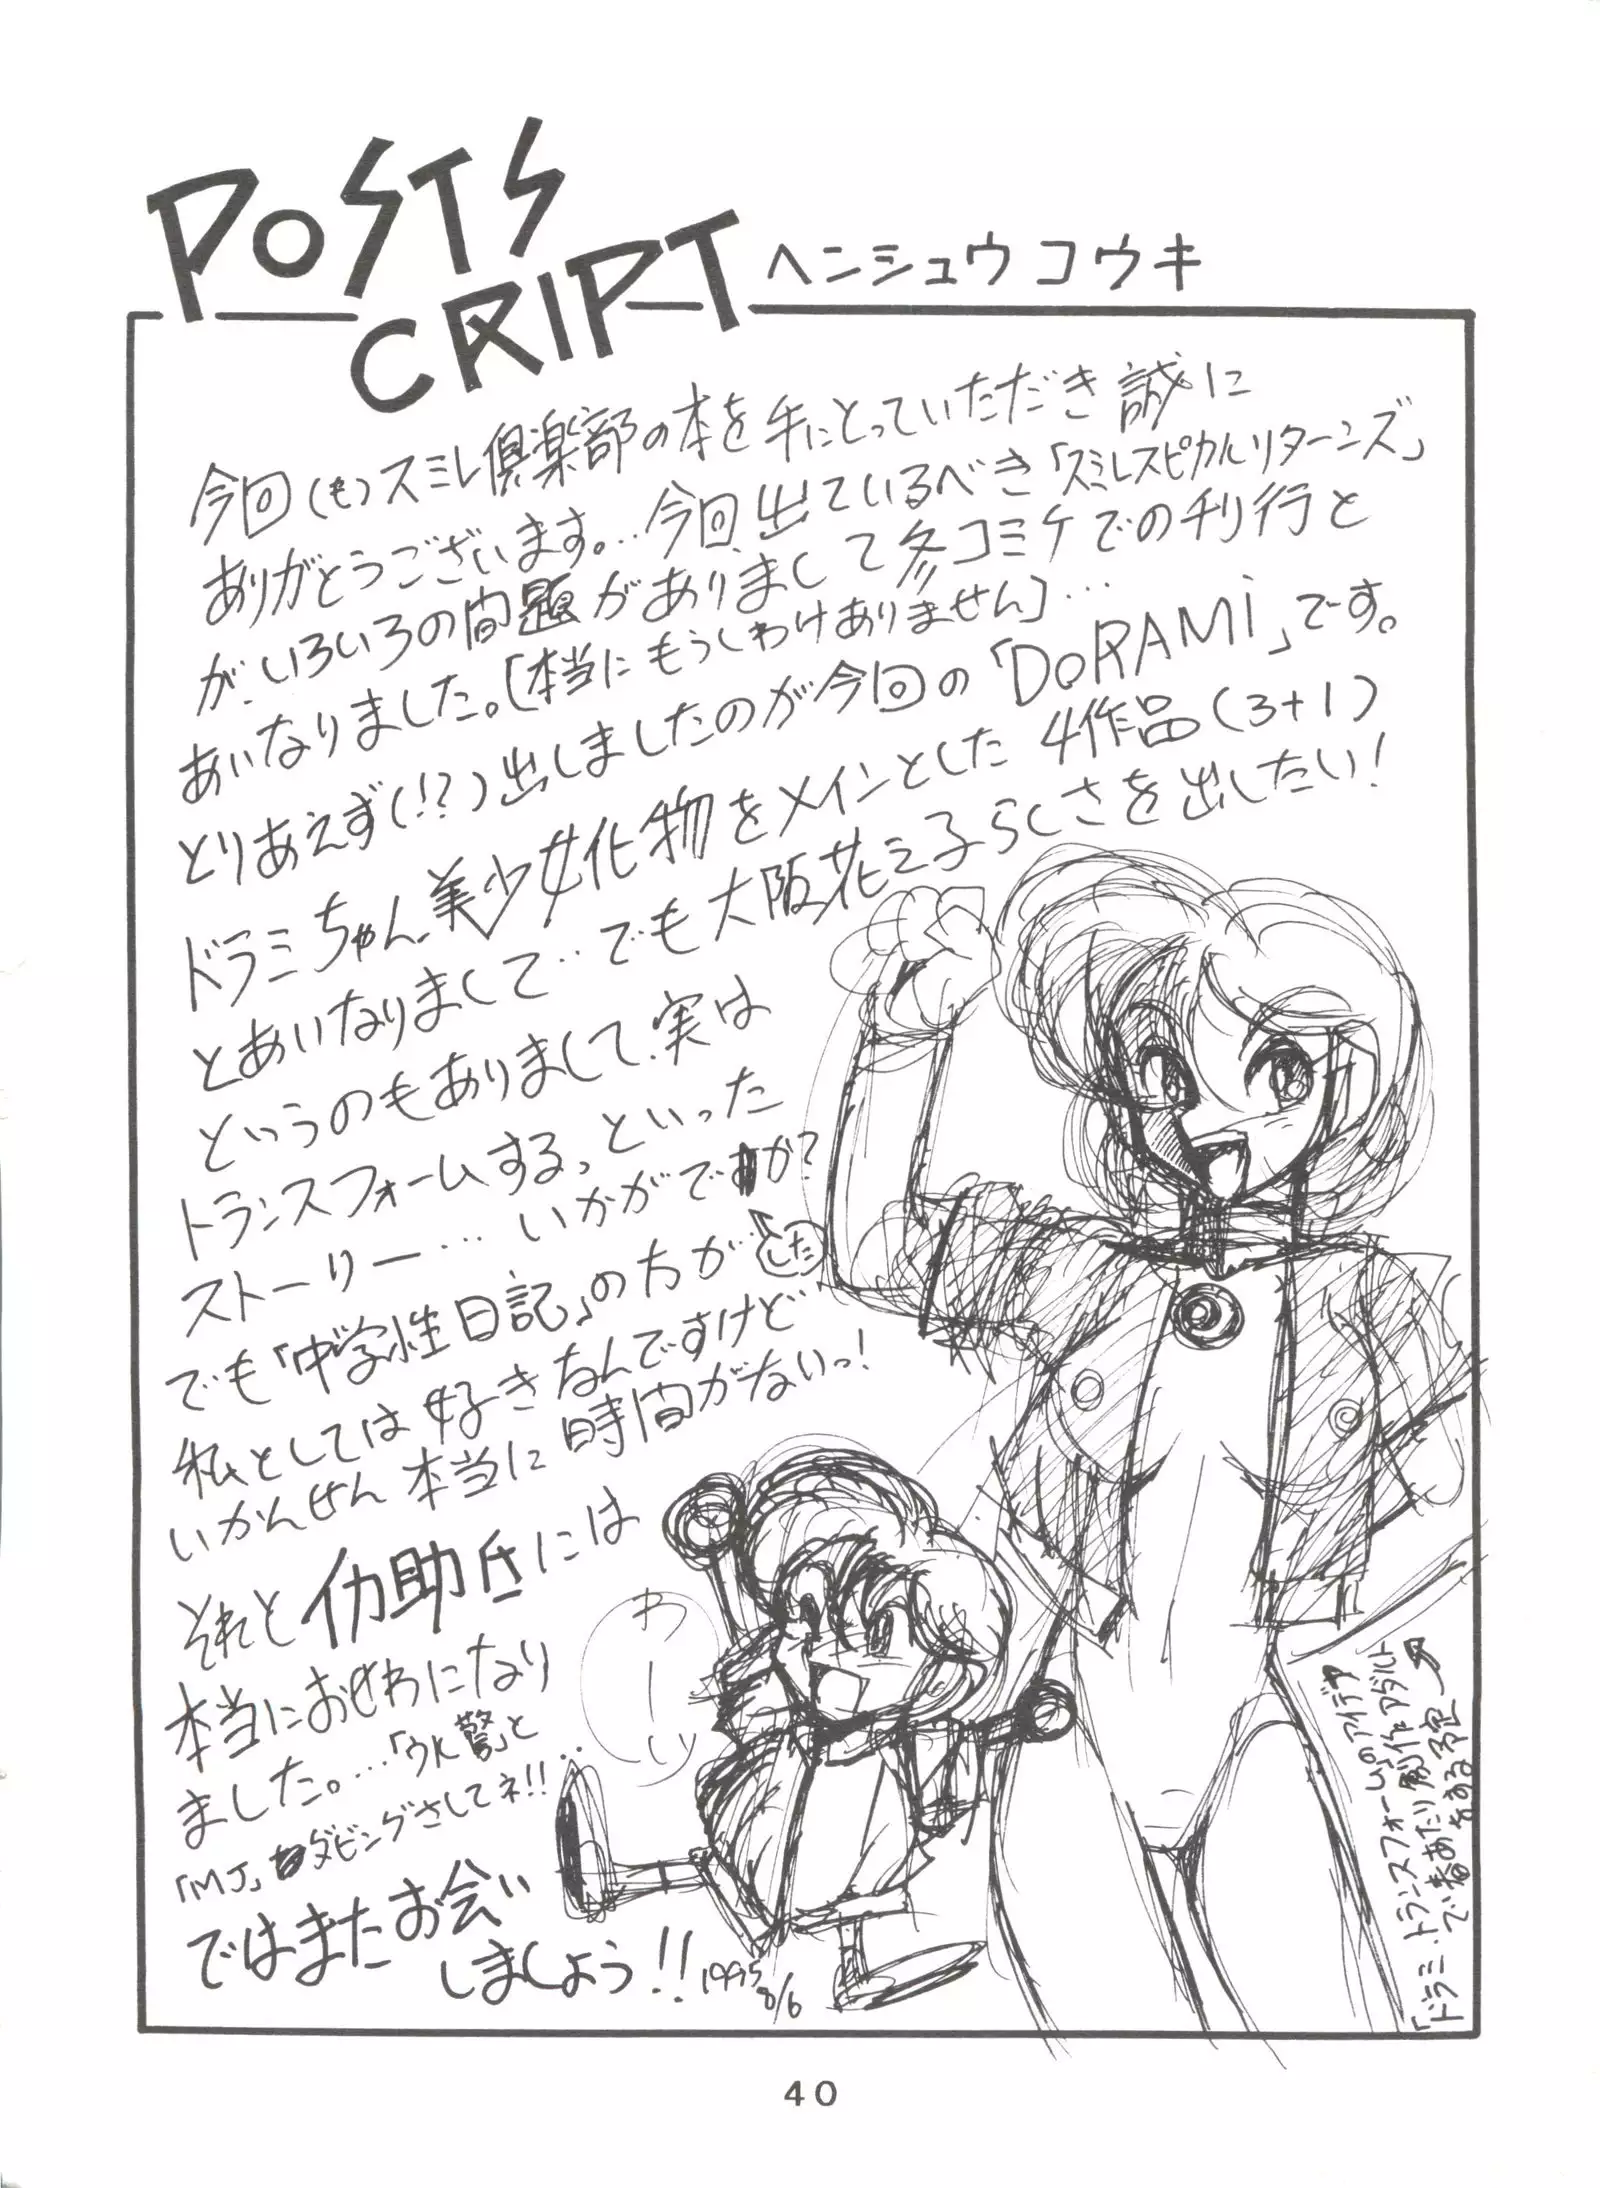 POSTS
CRIPT
ヘンシュウコウキ
今回(も)スミレ倶楽部の本を手にとっていただき誠に
ありがとうございます。…今回、出ているべき「スミレスピカルリターンズ」
が、いろいろの問題がありまして冬コミケでの刊行と
あいなりました。[本当にもうしわけありません]…
とりあえず(!?)出しましたのが今回の「DoRAMi」です。
ドラミちゃん、美少女化物をメインとした4作品(3+1)
とあいなりまして‥でも大阪花子らしさを出したい!
というのもありまして、実は
トランスフォームするっといった
ストーリー…いかがでか?
した
でも「中学性日記」の方が…
私としては好きなんですけど
いかんせん本当に時間がないっ!
それと 伊助氏には
本当におせわになり
ました。…「ウル警」と
「MJ」ダビングさしてネ!!
ではまたお会い
しましょう!! 1995 8/6
わーい
「ドラミ・トランスフォーム」のアイデア
で春あたり創作アダルト
でる予定もある
40